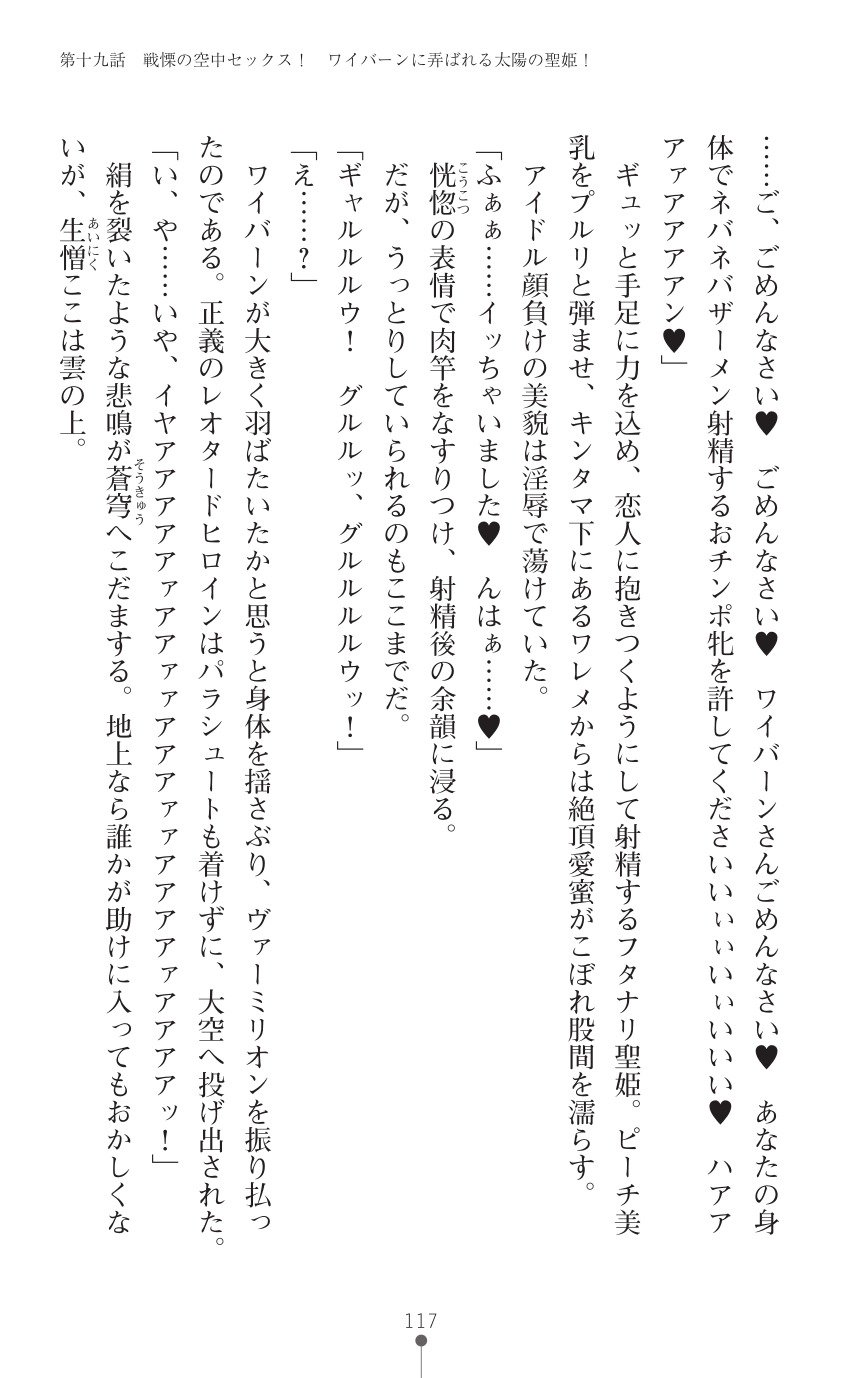 第十九話　戦慄の空中セックス！　ワイバーンに弄ばれる太陽の聖姫！
……ご、ごめんなさい♥　ごめんなさい♥　ワイバーンさんごめんなさい♥　あなたの身
体でネバネバザーメン射精するおチンポ牝を許してくださいいぃぃいぃいいい♥　ハアア
アァアアアアン♥」
　ギュッと手足に力を込め、恋人に抱きつくようにして射精するフタナリ聖姫。ピーチ美
乳をプルリと弾ませ、キンタマ下にあるワレメからは絶頂愛蜜がこぼれ股間を濡らす。
　アイドル顔負けの美貌は淫辱で蕩けていた。
「ふぁぁ……イッちゃいました♥　んはぁ……♥」
　恍惚こうこつの表情で肉竿をなすりつけ、射精後の余韻に浸る。
　だが、うっとりしていられるのもここまでだ。
「ギャルルルウ！　グルルッ、グルルルルウッ！」
「え……？」
　ワイバーンが大きく羽ばたいたかと思うと身体を揺さぶり、ヴァーミリオンを振り払っ
たのである。正義のレオタードヒロインはパラシュートも着けずに、大空へ投げ出された。
「い、や……いや、イヤアアアアアァアアァァアアアァァアアアアァアアアアッ！」
　絹を裂いたような悲鳴が蒼穹そうきゅうへこだまする。地上なら誰かが助けに入ってもおかしくな
いが、生憎あいにくここは雲の上。
117